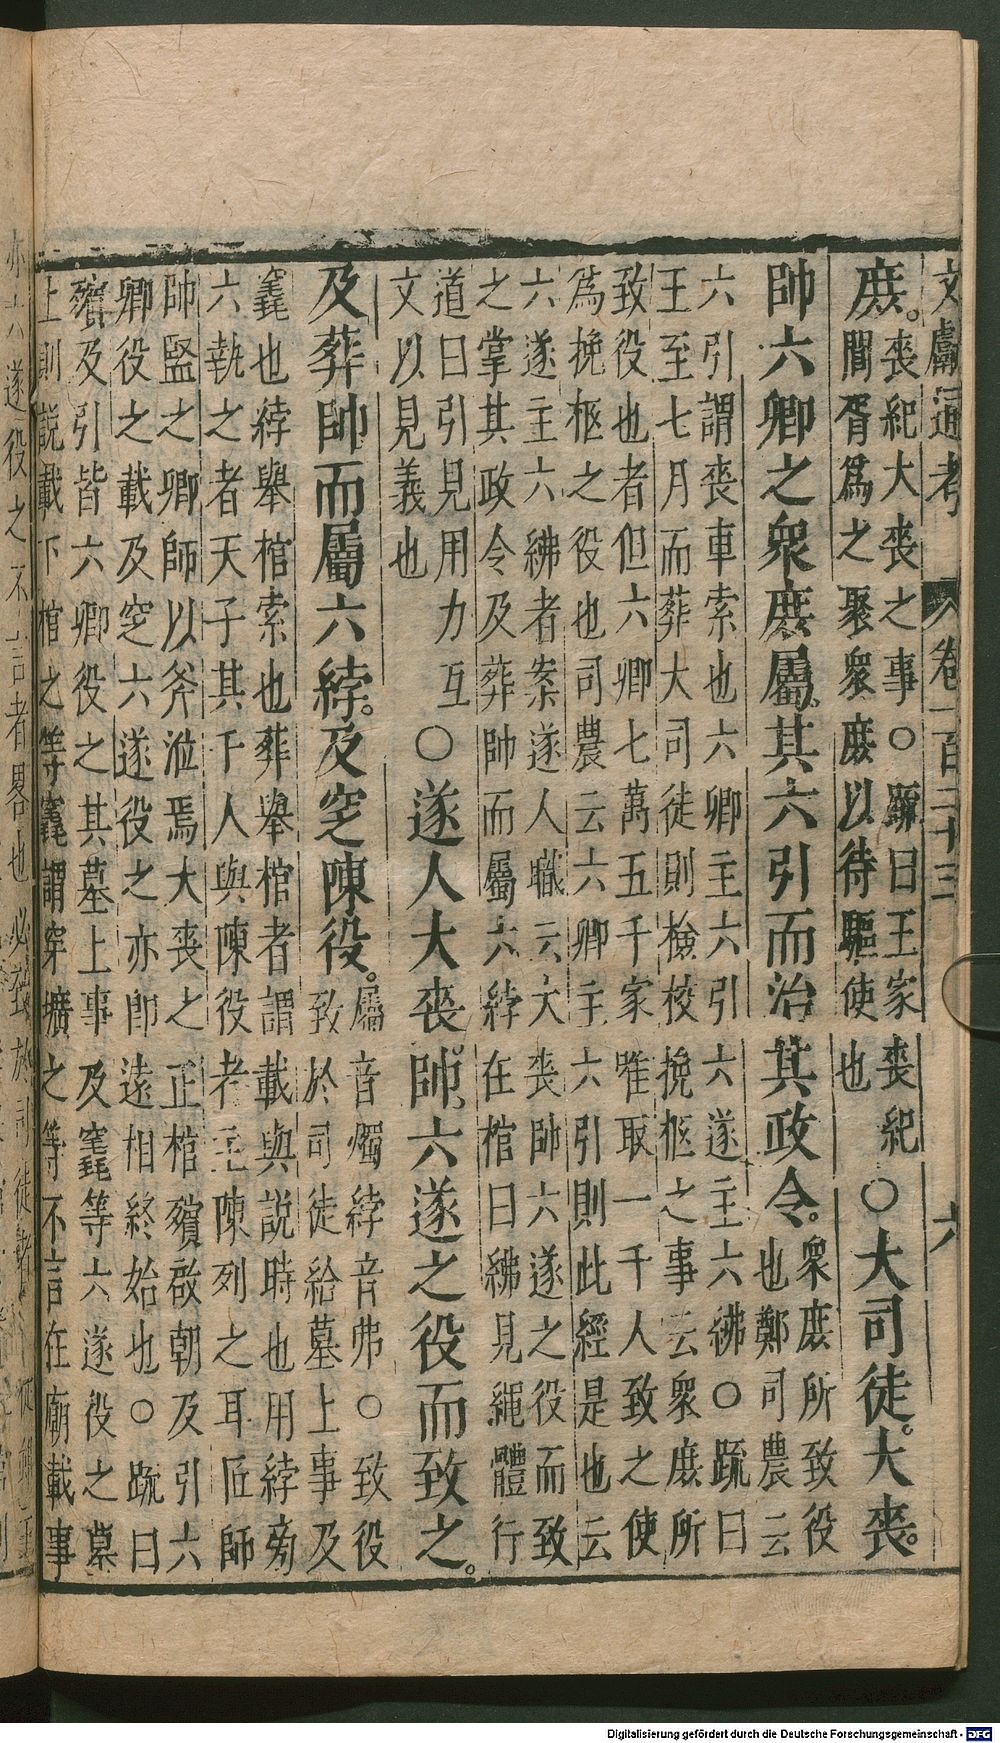 文獻通考 卷一百二十三 六
庶。
喪紀大喪之事○疏曰王家喪紀
閭胥爲之聚衆庶以待驅使也
○大司徒。大喪。
帥六卿之衆庶屬其六引而治其政令。
衆庶所致役
也鄭司農云
六引謂喪車索也六卿主六引六遂主六紼○疏曰
王至七月而葬大司徒則檢校挽柩之事云衆庶所
致役也者但六卿七萬五千家唯取一千人致之使
爲挽柩之役也司農云六卿主六引則此經是也云
六遂主六紼者案遂人職云大喪帥六遂之役而致
之掌其政令及葬帥而屬六綍在棺曰紼見繩體行
道曰引見用力互
文以見義也
○遂人大喪。帥六遂之役而致之。
及葬帥而屬六綍。及窆陳役。
屬音燭綍音弗○致役
致於司徒給墓上事及
竁也綍舉棺索也葬舉棺者謂載與說時也用綍旁
六執之者天子其千人與陳役者主陳列之耳匠師
帥監之卿師以斧涖焉大喪之正棺殯啟朝及引六
卿役之載及窆六遂役之亦即遠相終始也○疏曰
殯及引皆六卿役之其墓上事及竁等六遂役之墓
上則説載下棺之等竁謂穿壙之等不言在廟載事
Digitalisierung gefördert durch die Deutsche Forschungsgemeinschaft - DFG